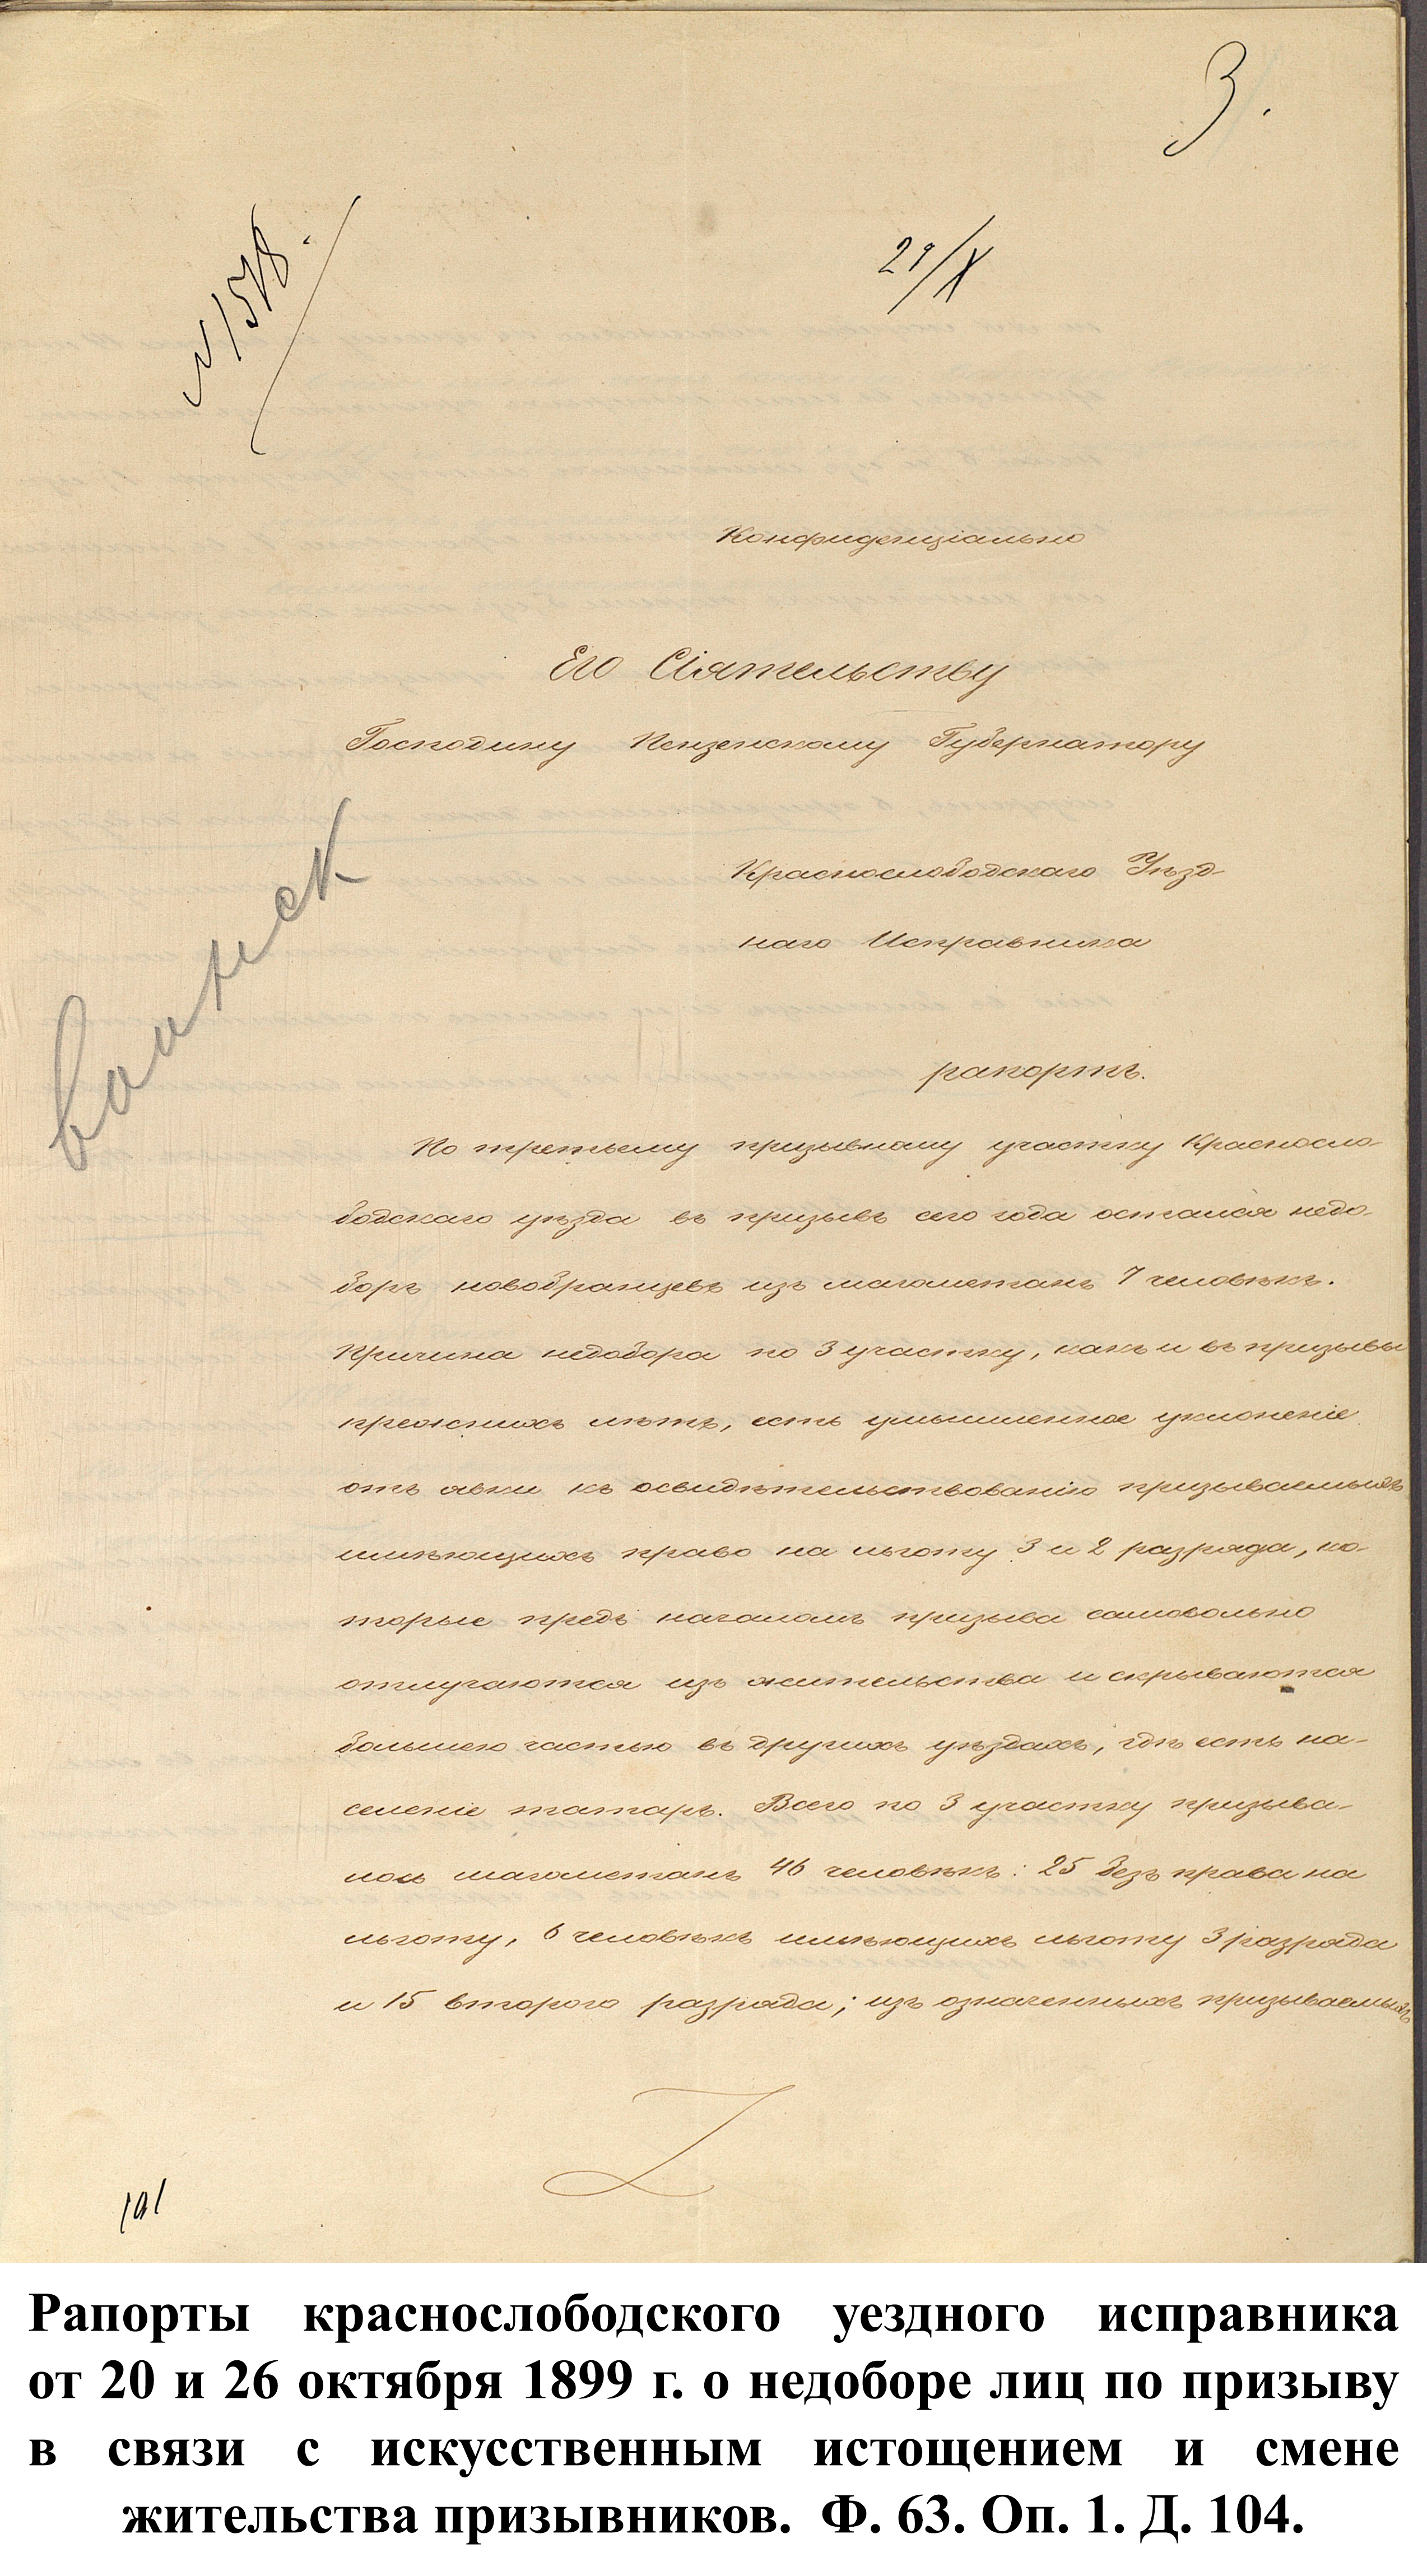 3.
№ 1518.
29/X
Конфиденціально
Его Сіятельству
Господину Пензенскому Губернатору
Краснослободскаго Уѣзд-
наго Исправника
рапортъ.
По третьему призывному участку Красносло-
бодскаго уѣзда въ призывъ сего года остался недо-
боръ новобранцевъ изъ магометанъ 7 человѣкъ.
Причина недобора по 3 участку, какъ и въ призывы
прежнихъ лѣтъ, есть умышленное уклоненіе
отъ явки къ освидѣтельствованію призываемыхъ
имѣющихъ право на льготу 3 и 2 разряда, ко-
торые предъ началомъ призыва самовольно
отлучаются изъ жительства и скрываются
большею частью въ другихъ уѣздахъ, гдѣ есть на-
селеніе татаръ. Всего по 3 участку призыва-
лось магометанъ 46 человѣкъ: 25 безъ права на
льготу, 6 человѣкъ имѣющихъ льготу 3 разряда
и 15 второго разряда; изъ означенныхъ призываемыхъ
Рапорты краснослободского уездного исправника
от 20 и 26 октября 1899 г. о недоборе лиц по призыву
в связи с искусственным истощением и смене
жительства призывников. Ф. 63. Оп. 1. Д. 104.